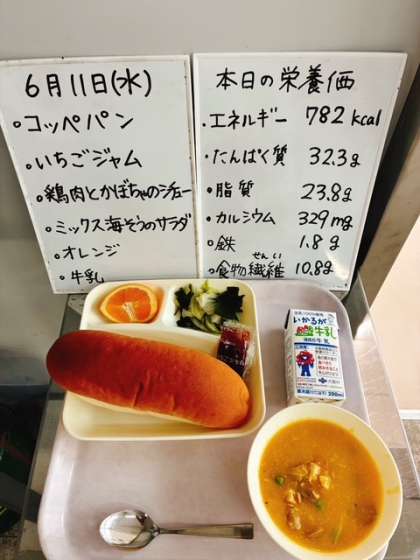 6月11日(水)
・コッペパン
・いちごジャム
・鶏肉とかぼちゃのシチュー
・ミックス海そうのサラダ
・オレンジ
・牛乳
本日の栄養価
・エネルギー 782 kcal
・たんぱく質 32.3g
・脂質 23.8g
・カルシウム 329mg
・鉄 1.8g
・食物繊維 10.8g
せんい
いかるが
牛乳